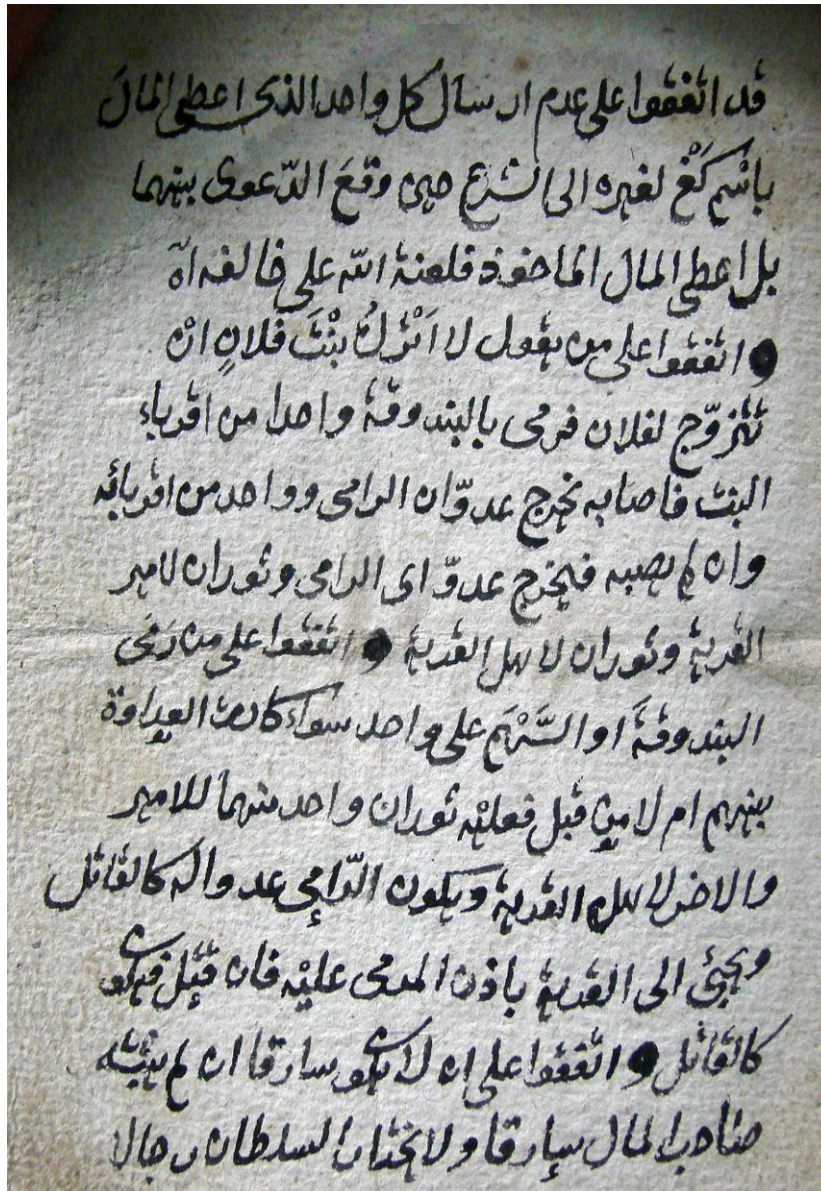 قد اتفقوا على عدم ارسال كل واحد الذى اعطى المالَ
باسْمِ كَغْ لغيره الى الشرع حين وقعَ الدّعوى بينهما
بل اعطى المال المأخوذ فلعنة الله على خالفه اه
اتفقوا على من يقول لا اَتْرُكُ بِنْتَ فلانٍ انْ
تتزوّج لفلان فرمى بالبندوقة واحدا من اقرباء
البنت فاصابه يخرج عدوّان الرامى وواحد من اقربائه
وان لم يصبه فيخرج عدوّ اى الرامى وثوران لامير
القرية وثوران لاهل القرية اتفقوا على من رَمَى
البندوقةَ او السَّهْمَ على واحد سواء كانت العداوة
بينهم ام لا من قبل فعليْه ثوران واحد منهما للامير
والاخر لاهل القرية ويكون الرّامِى عدوا له كالقاتل
ويجئ الى القرية باذن المرمى عليْه فان قُتِل فيكون
كالقاتل اتفقوا على ان لا يكون سارقا ان لم يثبته
صاحب المال سارقا ولا يختار السلطان رجالا